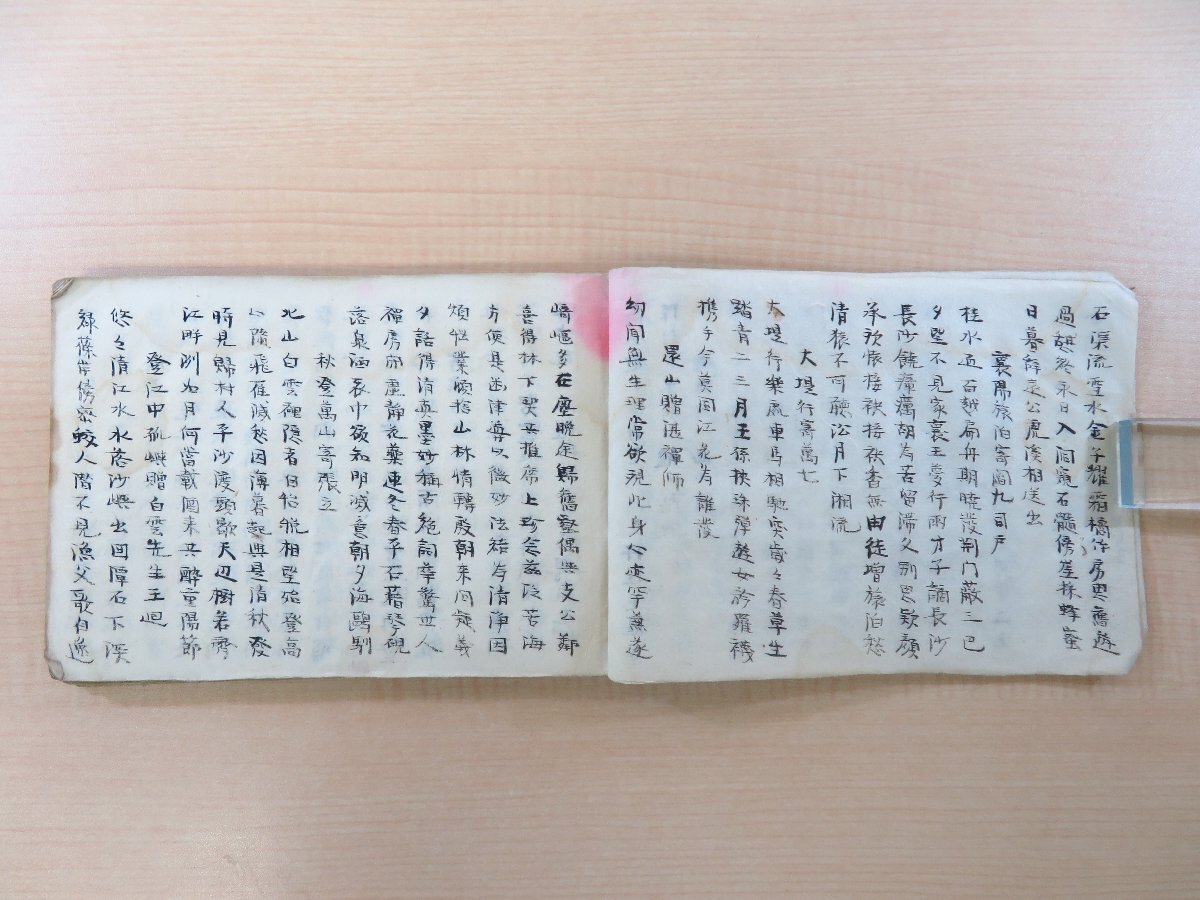 石渠流雪水金子耀霜橘作房思舊遊
過憩終永日入洞窺石髓傍崖採蜂蜜
日暮辞遠公虎溪相送出
襄陽旅泊寄閻九司戸
桂水通百越扁舟期曉發荆门蔽三巴
夕望不見家襄王夢行雨才子謫長沙
長沙饒瘴癘胡为苦留滞久別思欵顔
承歓懐接袂接袂杳無由徒增旅泊愁
清猿不可聽沿月下湘流
大堤行寄萬七
大堤行樂處車馬相馳突歳々春草生
踏青二三月王孫挟珠彈遊女矜羅襪
携手今莫同江花为誰發
還山贈湛禪师
幼聞無生理常欲觀此身心迹罕兼遂
崎嶇多在塵晩途歸舊壑偶與支公鄰
喜得林下契共推席上珍念茲泛苦海
方便是迷津導以微妙法结为清浄因
煩惱業頓捨山林情轉殷朝来问疑義
夕話得清真墨妙称古絶詞華驚世人
禪房閉虚静花藥連冬春平石藉琴硯
落泉洒衣巾欲知明滅意朝夕海鷗馴
秋登萬山寄張五
北山白雲裡隱者自怡悦相望始登高
心隨飛雁滅愁因薄暮起興是清秋發
時見歸村人平沙渡頭歇天辺樹若薺
江畔洲如月何當載酒来共醉重陽節
登江中孤嶼贈白雲先生王迥
悠々清江水水落沙嶼出回潭石下深
緑篠岸傍密鮫人潜不見漁父歌自逸